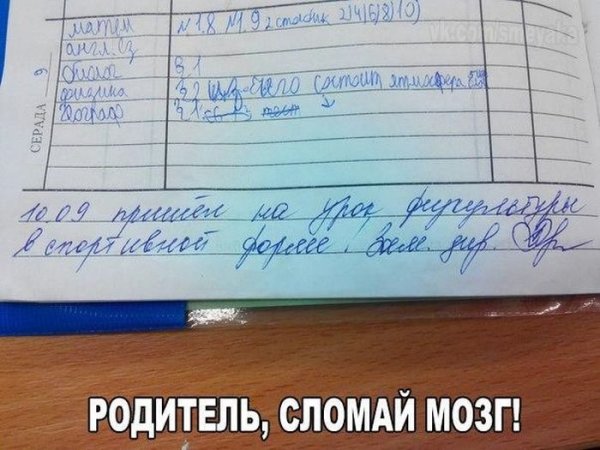 vk.com/smeyaka
матем №1.8 №1.9 2 столбик 2)4)6)8)10)
англ. яз
биолог § 1
физика § 2 из чего состоит атмосфера
географ § 1
СЕРАДА 9
10.09 пришёл на урок физкультуры
в спортивной форме. Зам. дир.
РОДИТЕЛЬ, СЛОМАЙ МОЗГ!